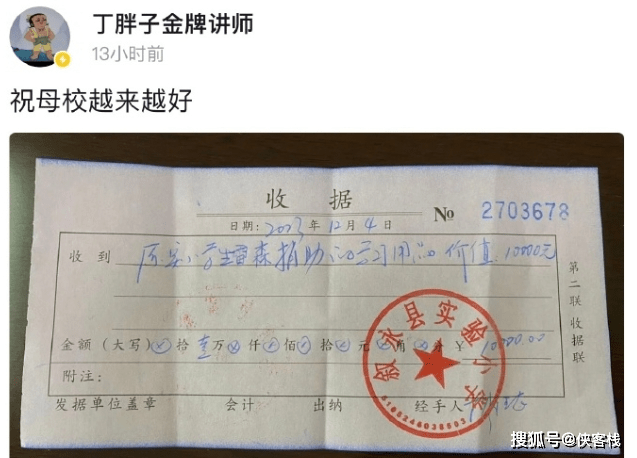 丁胖子金牌讲师
13小时前
祝母校越来越好
收 据
日期: 2023 年 12 月 4 日
№ 2703678
收到 原实小学生曹森捐助的学习用品价值 10000元
金额(大写) ⊗ 拾 壹 万 ⊗ 仟 ⊗ 佰 ⊗ 拾 ⊗ 元 ⊗ 角 ⊗ 分 ¥ 10000.00
附注:
发据单位盖章 会计 出纳 经手人
第二联 收据联
叙永县实验小学
5105248038503
搜狐号@侠客栈